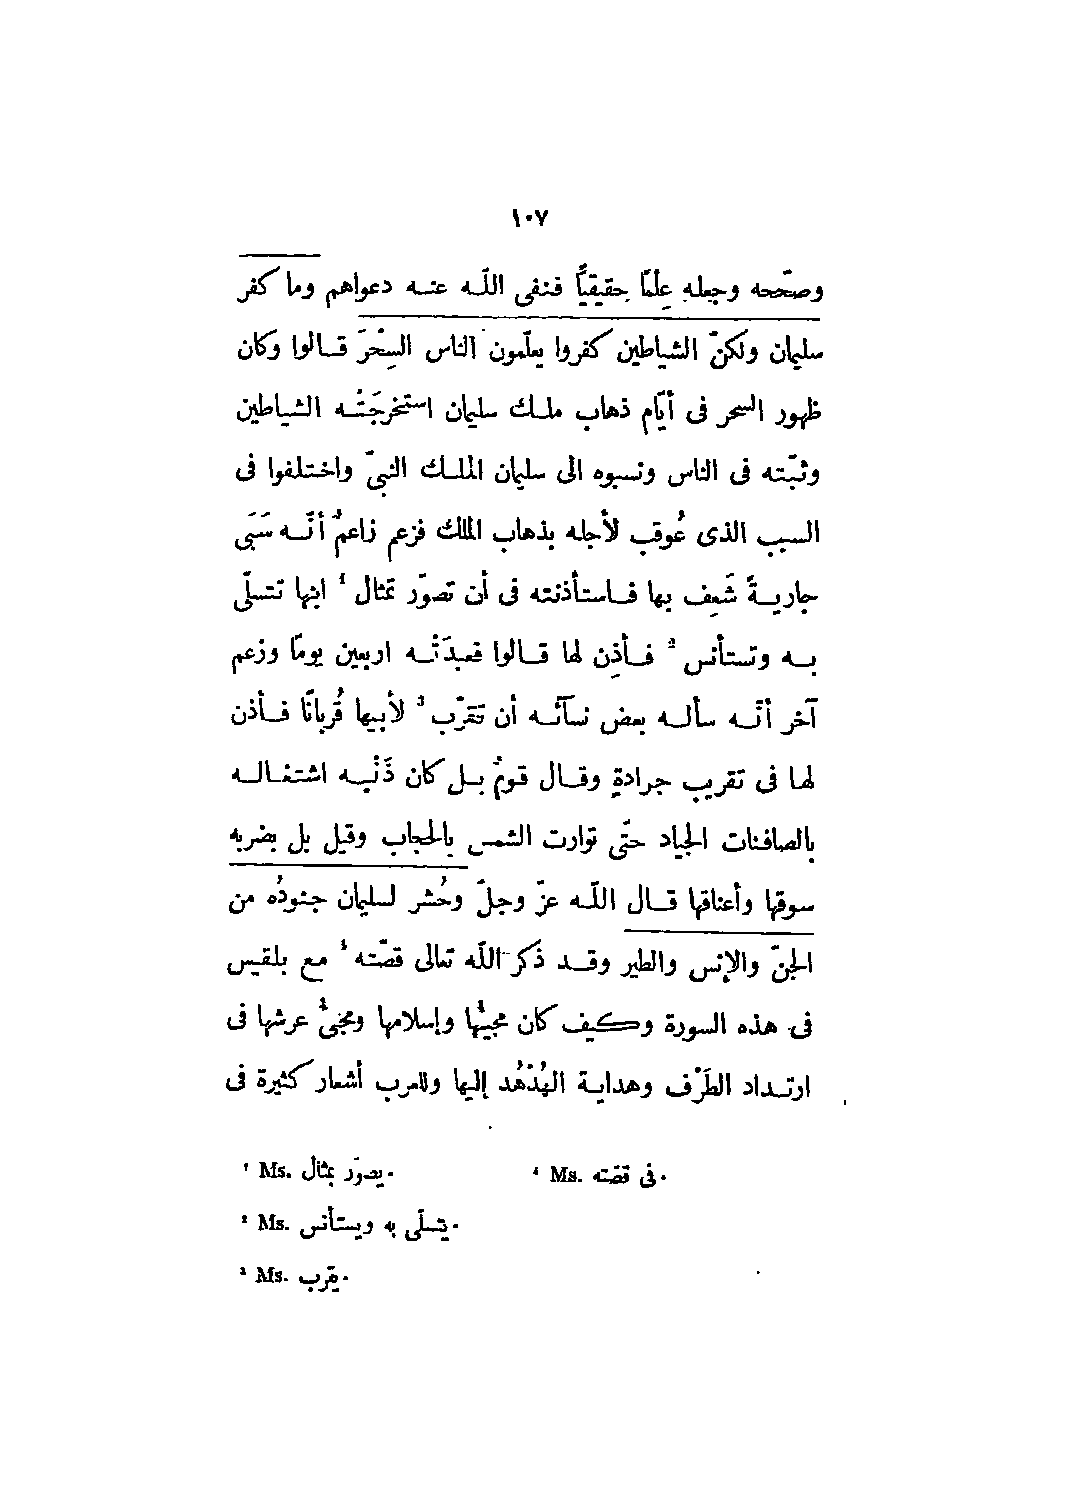 ١٠٧
وصحّحه وجعله عِلمًا حقيقيًّا فنفى اللّه عنه دعواهم وما كفر
سليمان ولكنّ الشياطين كفروا يعلّمون الناس السِحْرَ قالوا وكان
ظهور السحر فى أيّام ذهاب ملك سليمان استخرجَتْه الشياطين
وثبّته فى الناس ونسبوه الى سليمان الملك النبىّ واختلفوا فى
السبب الذى عُوقب لأجله بذهاب الملك فزعم زاعمٌ أنّه سَبَى
جاريةً شَعِف بها فاستأذنته فى أن تصوّر تمثال ¹ ابنها تتسلّى
به وتستأنس ² فأذِن لها قالوا فعبدَتْه اربعين يومًا وزعم
آخر أنّه سأله بعض نسآئه أن تقرّب ³ لأبيها قُربانًا فأذن
لها فى تقريب جرادةٍ وقال قومٌ بل كان ذَنْبه اشتغاله
بالصافنات الجياد حتّى توارت الشمس بالحجاب وقيل بل بضربه
سوقها وأعناقها قال اللّه عزّ وجلّ وحُشر لسليمان جنودُه من
الجنّ والإنس والطير وقد ذكر اللّه تعالى قصّته ⁴ مع بلقيس
فى هذه السورة وكيف كان مجيئها وإسلامها ومجىُٔ عرشها فى
ارتداد الطَرْف وهداية الهُدْهُد إليها وللعرب أشعار كثيرة فى
¹ Ms. يصوّر بمثال.
⁴ Ms. فى قصّته.
² Ms. يتسلّى به ويستأنس.
³ Ms. يقرّب.